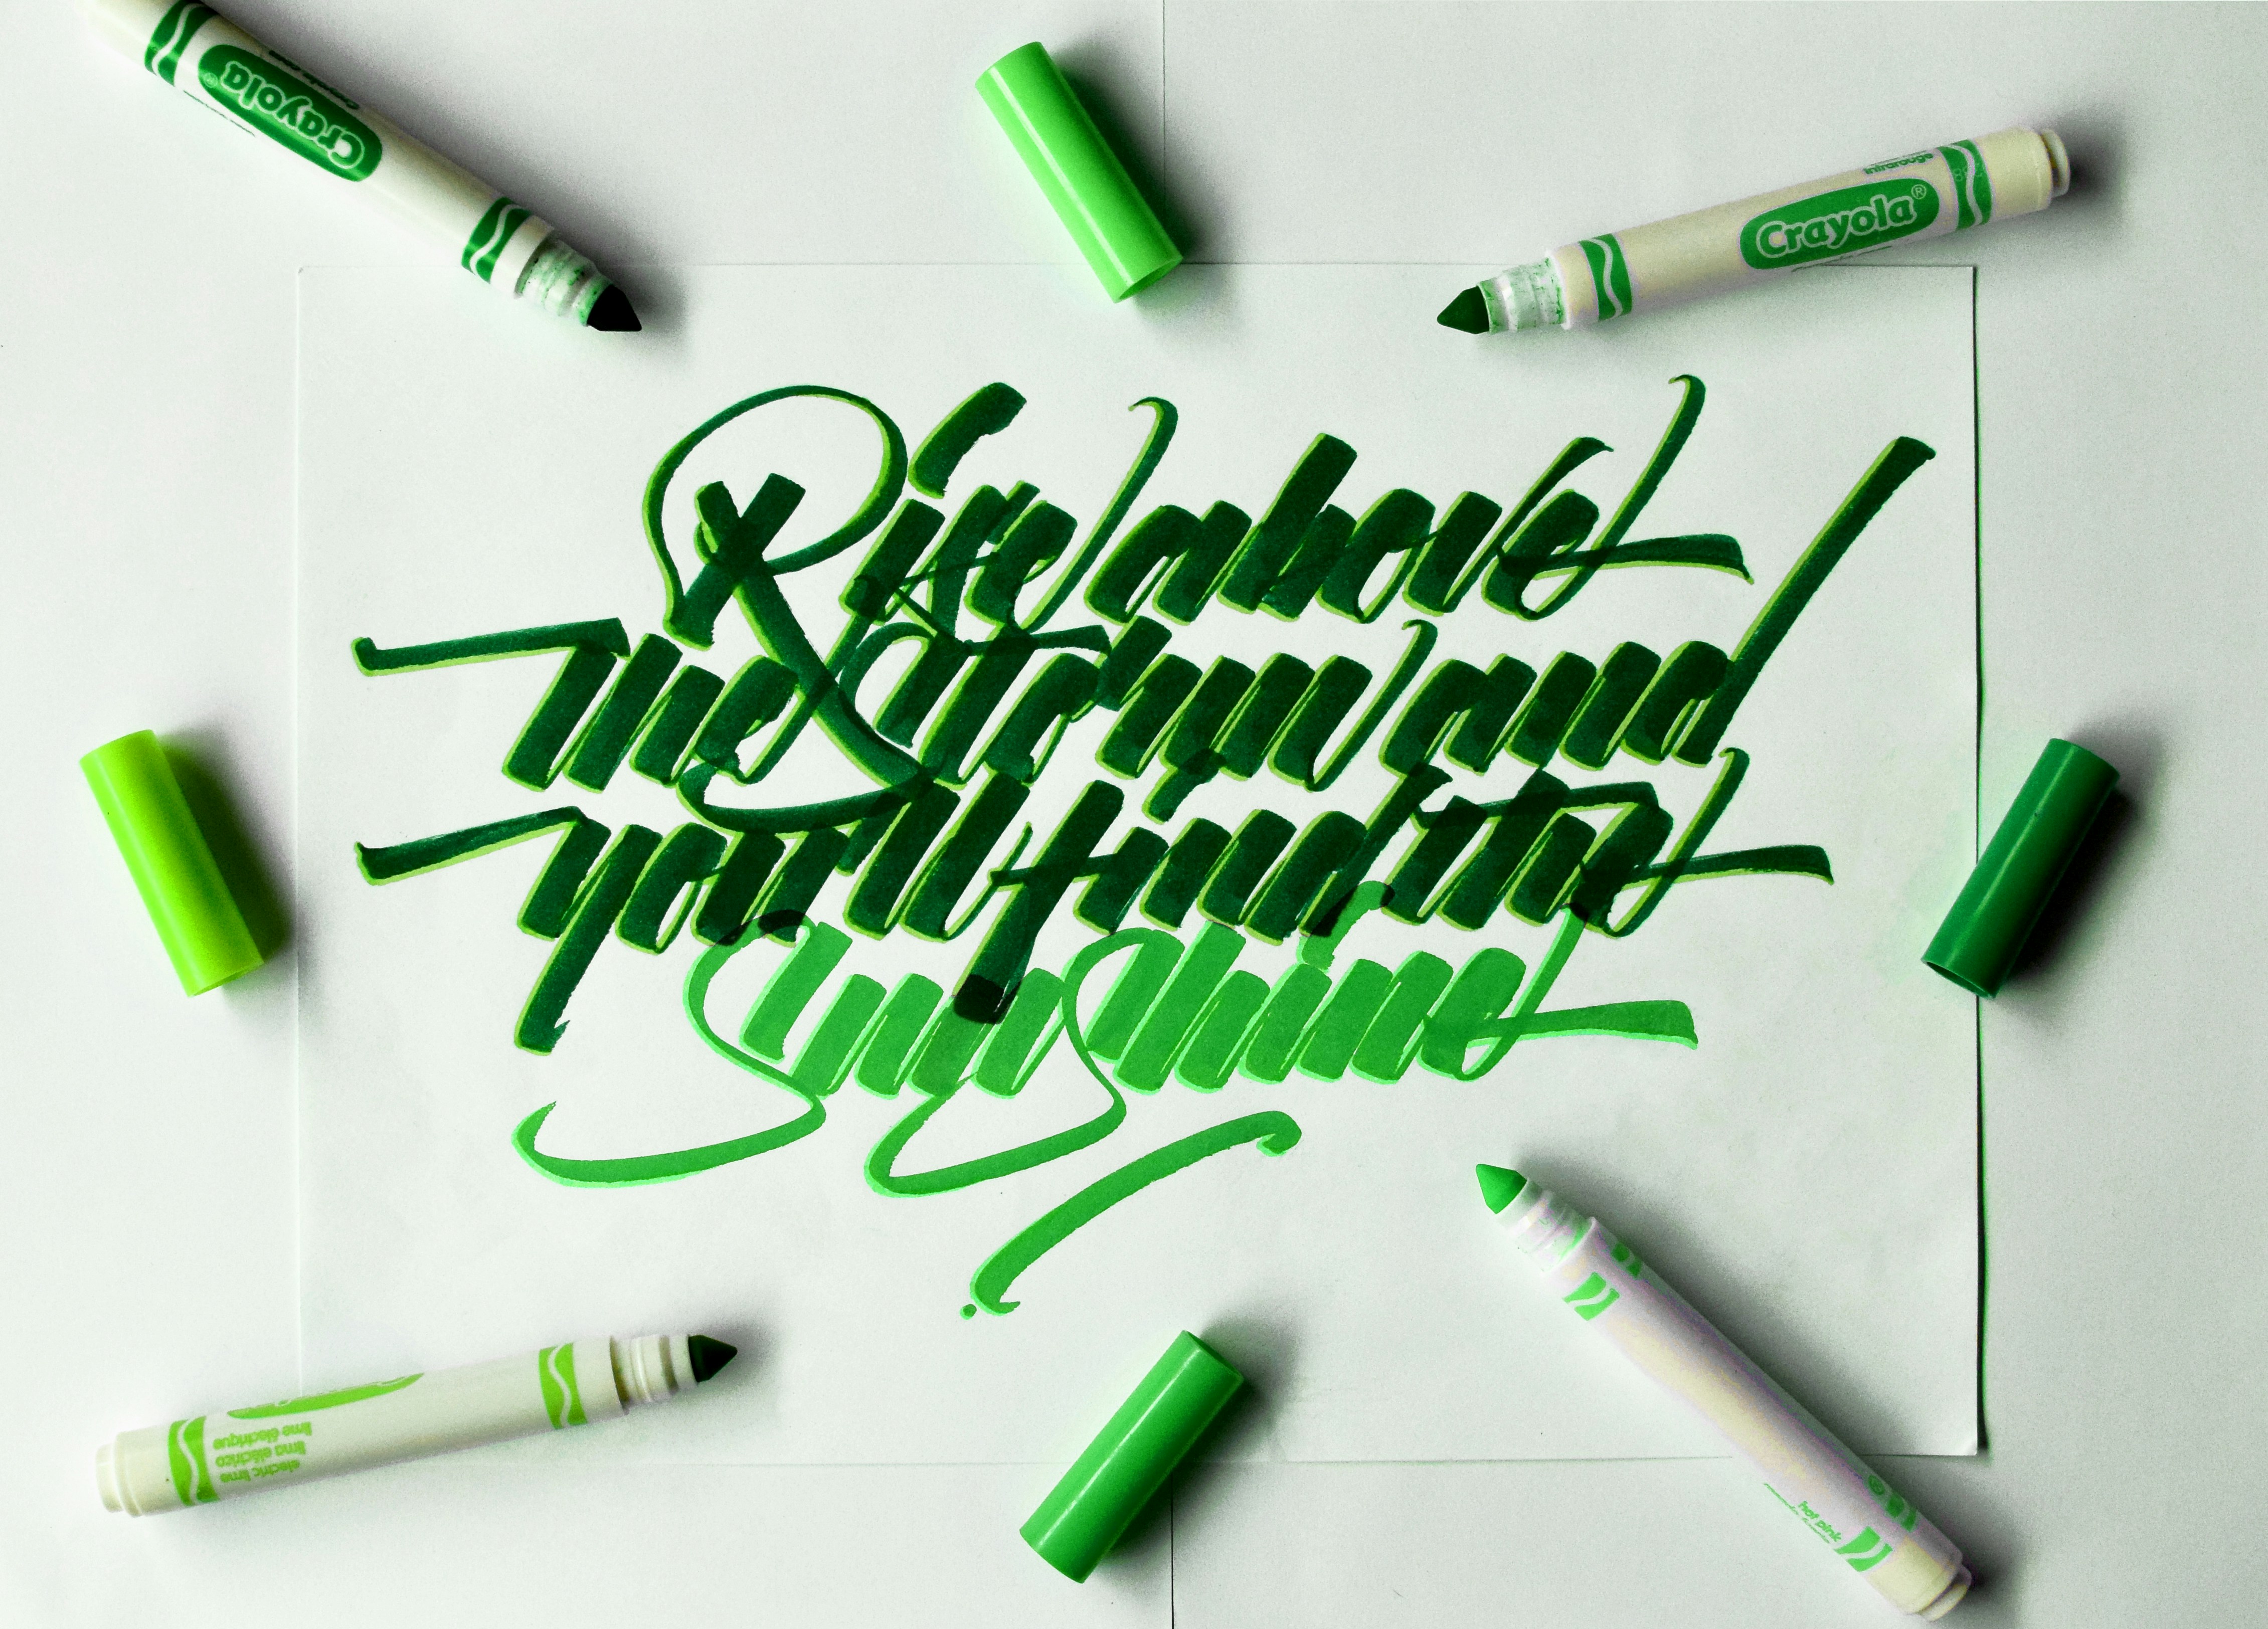 Crayola
Crayola®
infrarouge
Rise above
the storm and
you'll find the
Sunshine
electric lime
lima eléctrico
lime électrique
hot pink